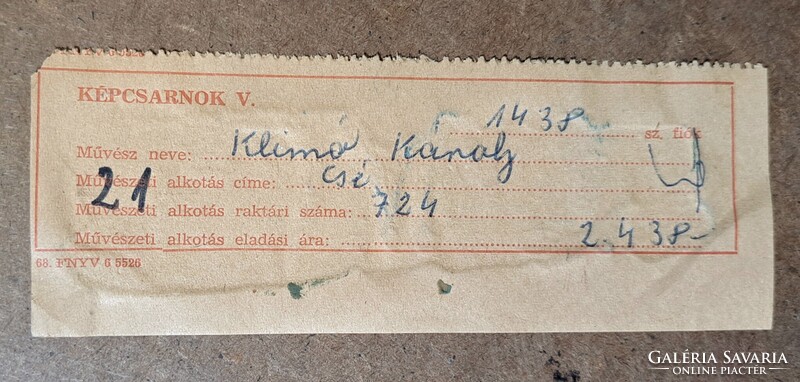 KÉPCSARNOK V.
1438 sz. fiók
Művész neve: Klimó Károly
Művészeti alkotás címe: Csé
21
Művészeti alkotás raktári száma: 724
Művészeti alkotás eladási ára: 2.438-
68. FNYV 6 5526
GALÉRIA SAVARIA
ONLINE PIACTÉR